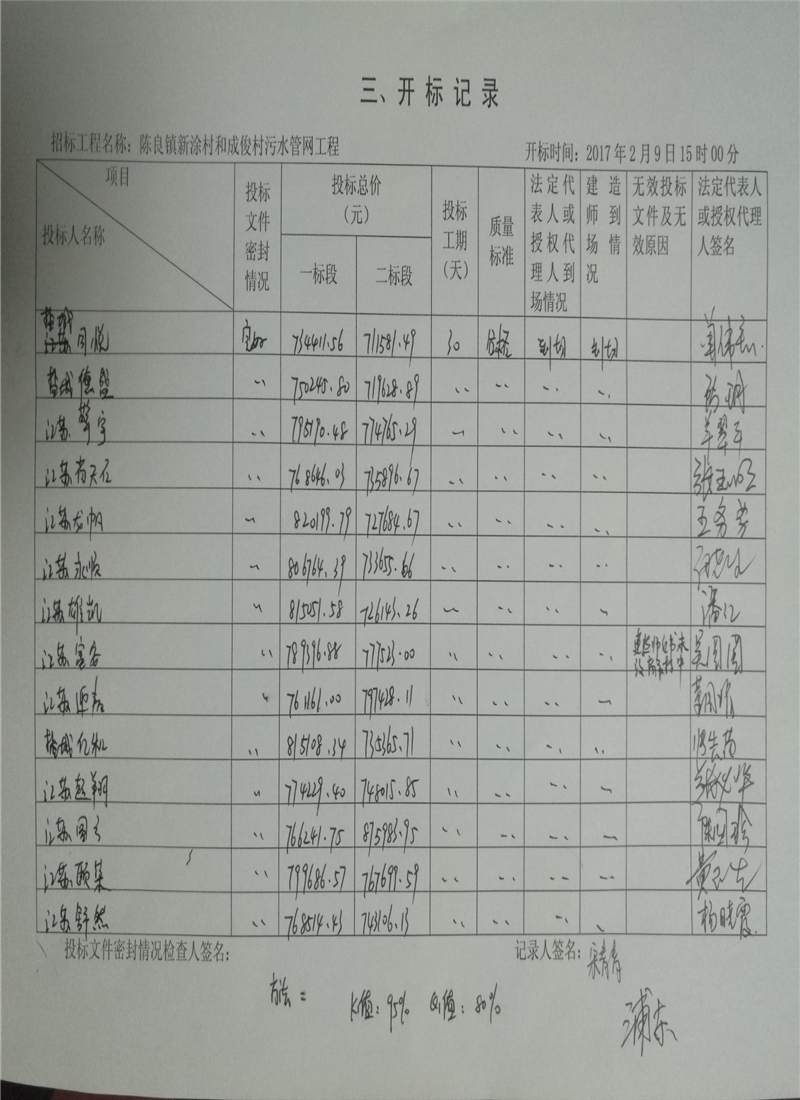 三、开标记录
招标工程名称：陈良镇新涂村和成俊村污水管网工程 开标时间：2017年2月9日15时00分
项目 投标人名称 投标文件密封情况 投标总价（元） 一标段 二标段 投标工期（天） 质量标准 法定代表人或授权代理人到场情况 建造师到场情况 无效投标文件及无效原因 法定代表人或授权代理人签名
盐城同悦 完好 734411.56 711581.49 30 合格 到场 到场
盐城德盛 〃 750245.80 719628.89 〃 〃 〃 〃
江苏苹宇 〃 795190.48 774765.29 〃 〃 〃 〃
江苏尚天石 〃 768646.03 735896.67 〃 〃 〃 〃
江苏龙帆 〃 820199.79 727684.67 〃 〃 〃 〃 王务芳
江苏永顺 〃 806764.39 733655.66 〃 〃 〃 〃
江苏雄凯 〃 815051.58 726143.26 〃 〃 〃 〃 潘江
江苏富客 〃 789396.88 777523.00 〃 〃 〃 〃 吴园园
江苏 〃 761161.00 797428.11 〃 〃 〃 〃
盐城亿和 〃 815108.34 735365.71 〃 〃 〃 〃
江苏超翔 〃 774229.40 748015.85 〃 〃 〃 〃
江苏国之 〃 766241.75 875983.95 〃 〃 〃 〃 陈国珍
江苏颐集 〃 799686.57 767699.59 〃 〃 〃 〃
江苏舒然 〃 768514.43 743106.13 〃 〃 〃 〃 杨晓霞
投标文件密封情况检查人签名： 记录人签名：宋青青
方法= K值：95% Q1值：80%
浦东